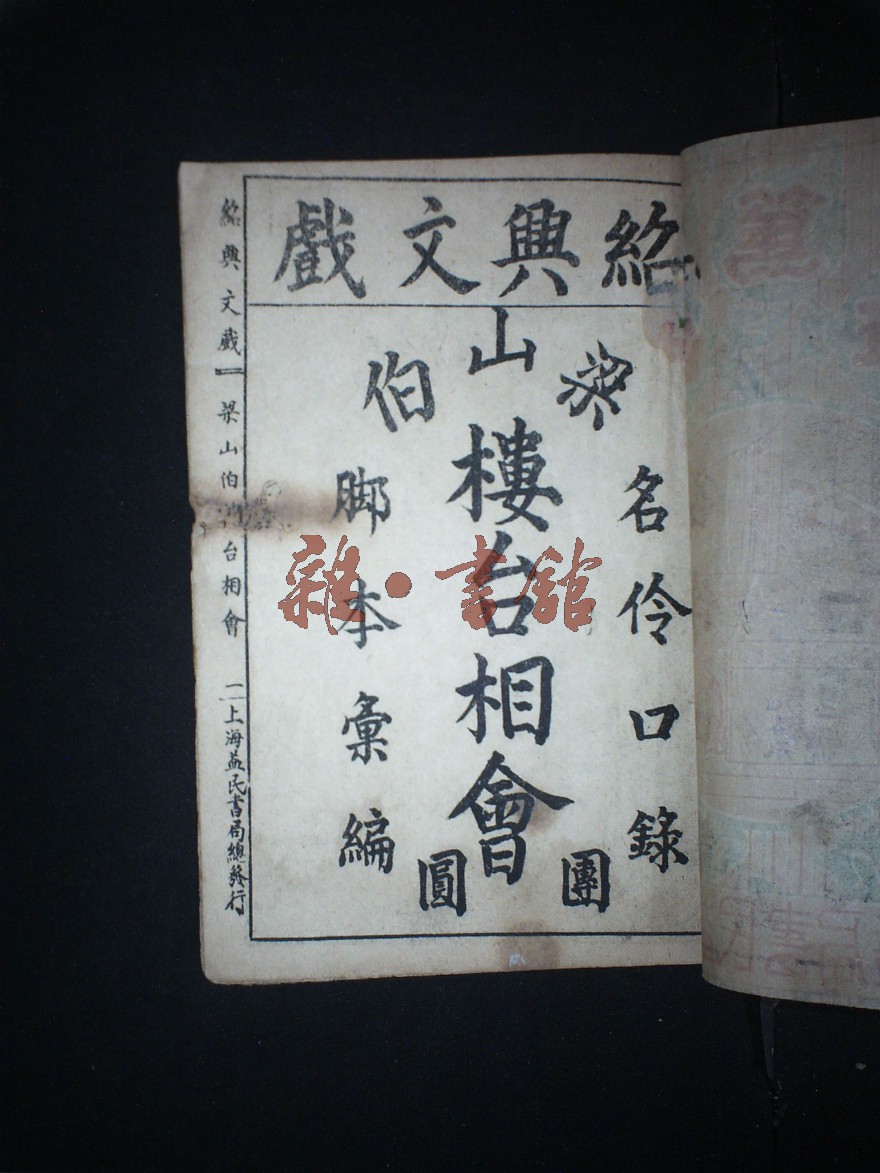 紹興文戲
名伶口錄
梁山伯
樓台相會
團圓
脚本彙編
紹興文戲 梁山伯 台相會 二 上海益民書局總發行
雜·書館